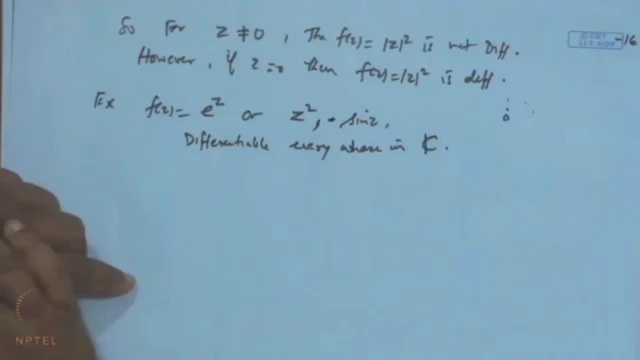 So For z ≠ 0, The f(z) = |z|² is not Diff.
However, if z = 0 then f(z) = |z|² is diff.
Ex f(z) = e^z or z², sinz,
Differentiable every where in ℂ.
-16
NPTEL